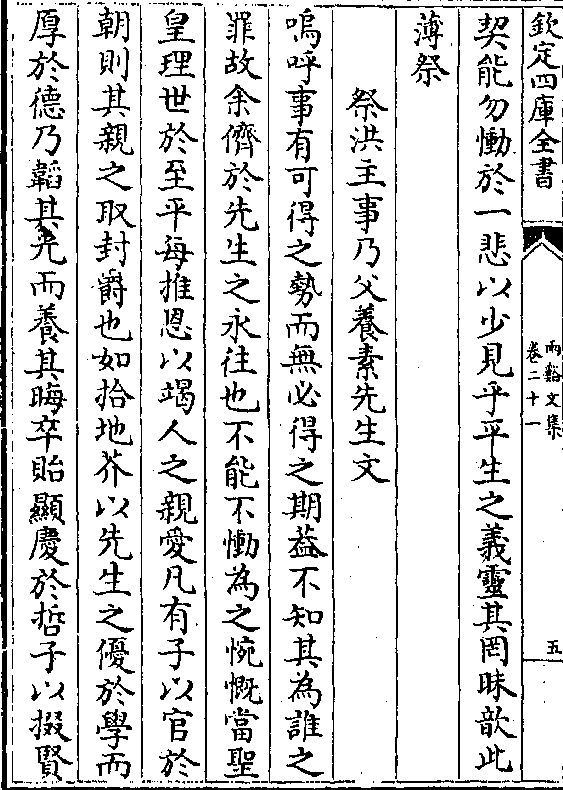 欽定四庫全書
兩谿文集
卷二十一
五
契能勿慟於一悲以少見乎平生之義靈其罔昧歆此
薄祭
祭洪主事乃父養素先生文
嗚呼事有可得之勢而無必得之期蓋不知其為誰之
罪故余儕於先生之永往也不能不慟為之惋慨當聖
皇理世於至平每推恩以竭人之親愛凡有子以官於
朝則其親之取封爵也如拾地芥以先生之優於學而
厚於德乃韜其光而養其晦卒貽顯慶於哲子以掇賢